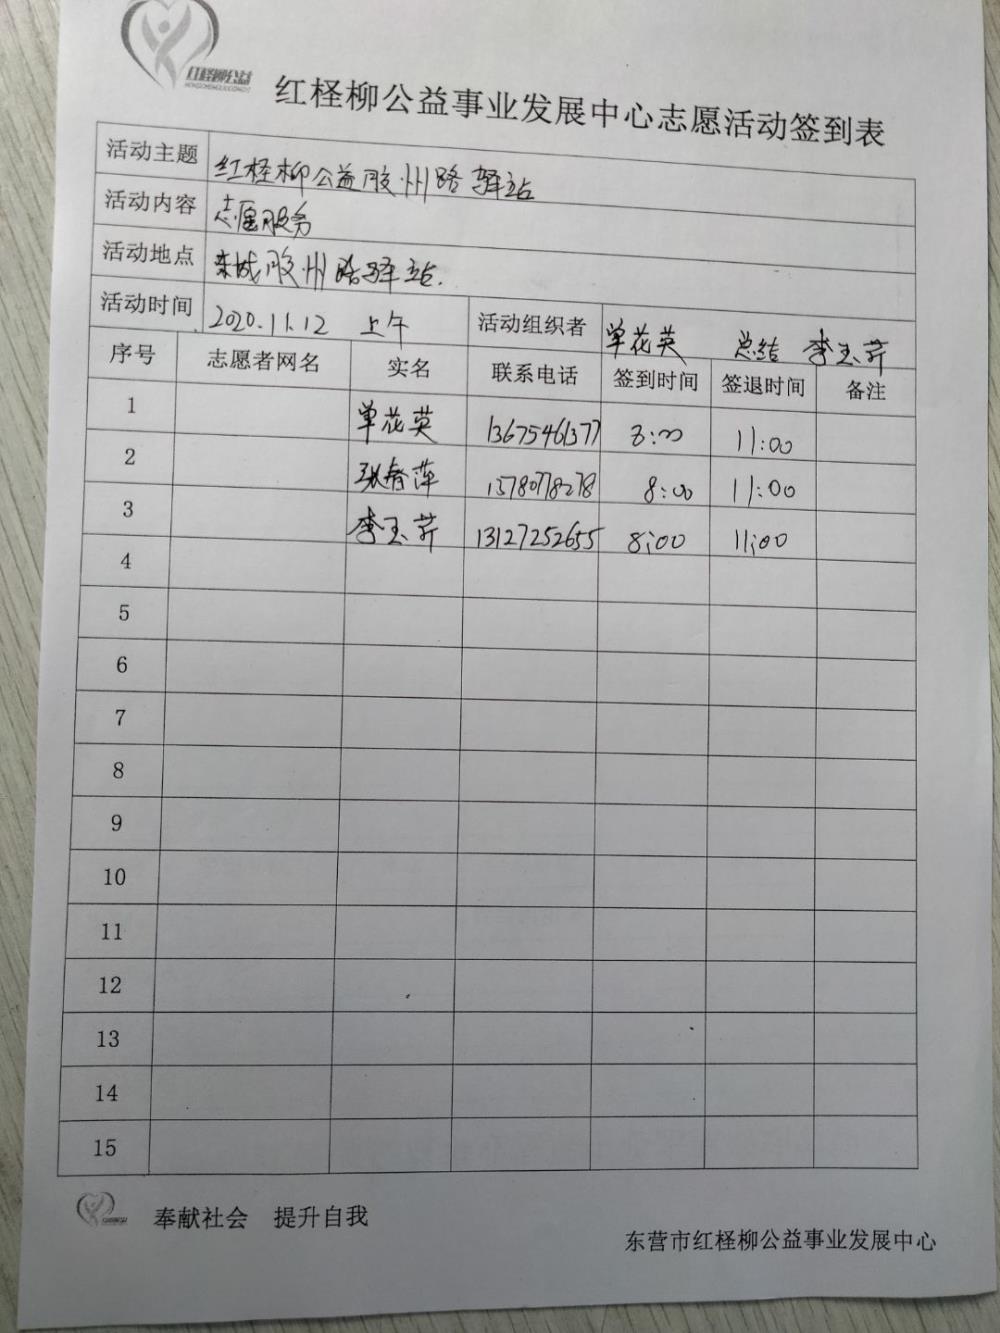 红柽柳公益
红柽柳公益事业发展中心志愿活动签到表
活动主题 红柽柳公益胶州路驿站
活动内容 志愿服务
活动地点 东城胶州路驿站.
活动时间 2020.11.12 上午 活动组织者 单花英 总结 李玉芹
序号 志愿者网名 实名 联系电话 签到时间 签退时间 备注
1 单花英 13675461377 8:00 11:00
2 张春萍 15780778278 8:00 11:00
3 李玉芹 13127252655 8:00 11:00
4
5
6
7
8
9
10
11
12
13
14
15
奉献社会 提升自我
东营市红柽柳公益事业发展中心